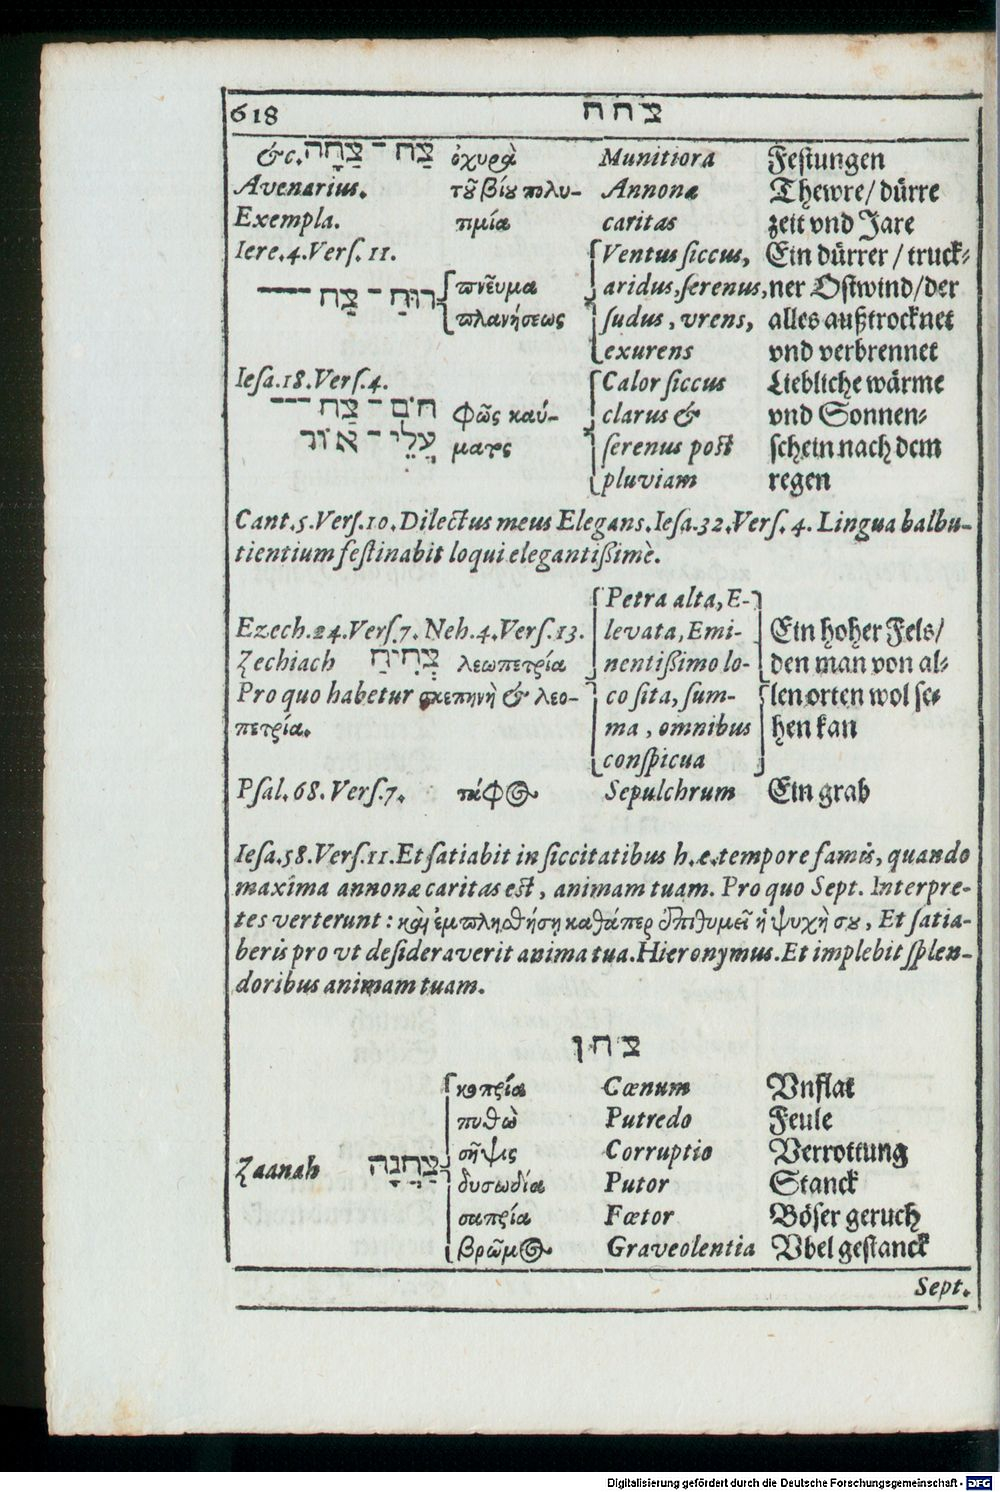 618 צחח
&c. צַח־צַחָה ὀχυρὰ Munitiora Festungen
Avenarius. τοῦ βίου πολυ- Annonæ Thewre/ dürre
Exempla. τιμία caritas zeit vnd Jare
Iere.4.Vers.11. Ventus siccus, Ein dürrer / truck-
רוּחַ־צַח πνεῦμα aridus, serenus, ner Ostwind/der
πλανήσεως sudus, vrens, alles außtrocknet
exurens vnd verbrennet
Iesa.18.Vers.4. Calor siccus Liebliche wärme
חֹם־צַח φῶς καύ- clarus & vnd Sonnen-
עֲלֵי־אוֹר ματος serenus post schein nach dem
pluviam regen
Cant.5.Vers.10. Dilectus meus Elegans. Iesa.32.Vers.4. Lingua balbu-
tientium festinabit loqui elegantißimè.
Petra alta, E-
Ezech.24.Vers.7. Neh.4.Vers.13. levata, Emi- Ein hoher Fels/
Zechiach צְחִיחַ λεωπετρία nentißimo lo- den man von al-
Pro quo habetur σκεπηνὴ & λεο- co sita, sum- len orten wol se-
πετρία. ma, omnibus hen kan
conspicua
Psal.68.Vers.7. τάφος Sepulchrum Ein grab
Iesa.58.Vers.11. Et satiabit in siccitatibus h.e. tempore famis, quando
maxima annonæ caritas est, animam tuam. Pro quo Sept. Interpre-
tes verterunt: καὶ ἐμπλησθήσῃ καθάπερ ἐπιθυμεῖ ἡ ψυχὴ σου, Et satia-
beris pro vt desideraverit anima tua. Hieronymus. Et implebit splen-
doribus animam tuam.
צחן
κοπρία Cœnum Vnflat
πυθὼ Putredo Feule
σῆψις Corruptio Verrottung
Zaanah צַחֲנָה δυσωδία Putor Stanck
σαπρία Fœtor Böser geruch
βρῶμος Graveolentia Vbel gestanck
Sept.
Digitalisierung gefördert durch die Deutsche Forschungsgemeinschaft - DFG